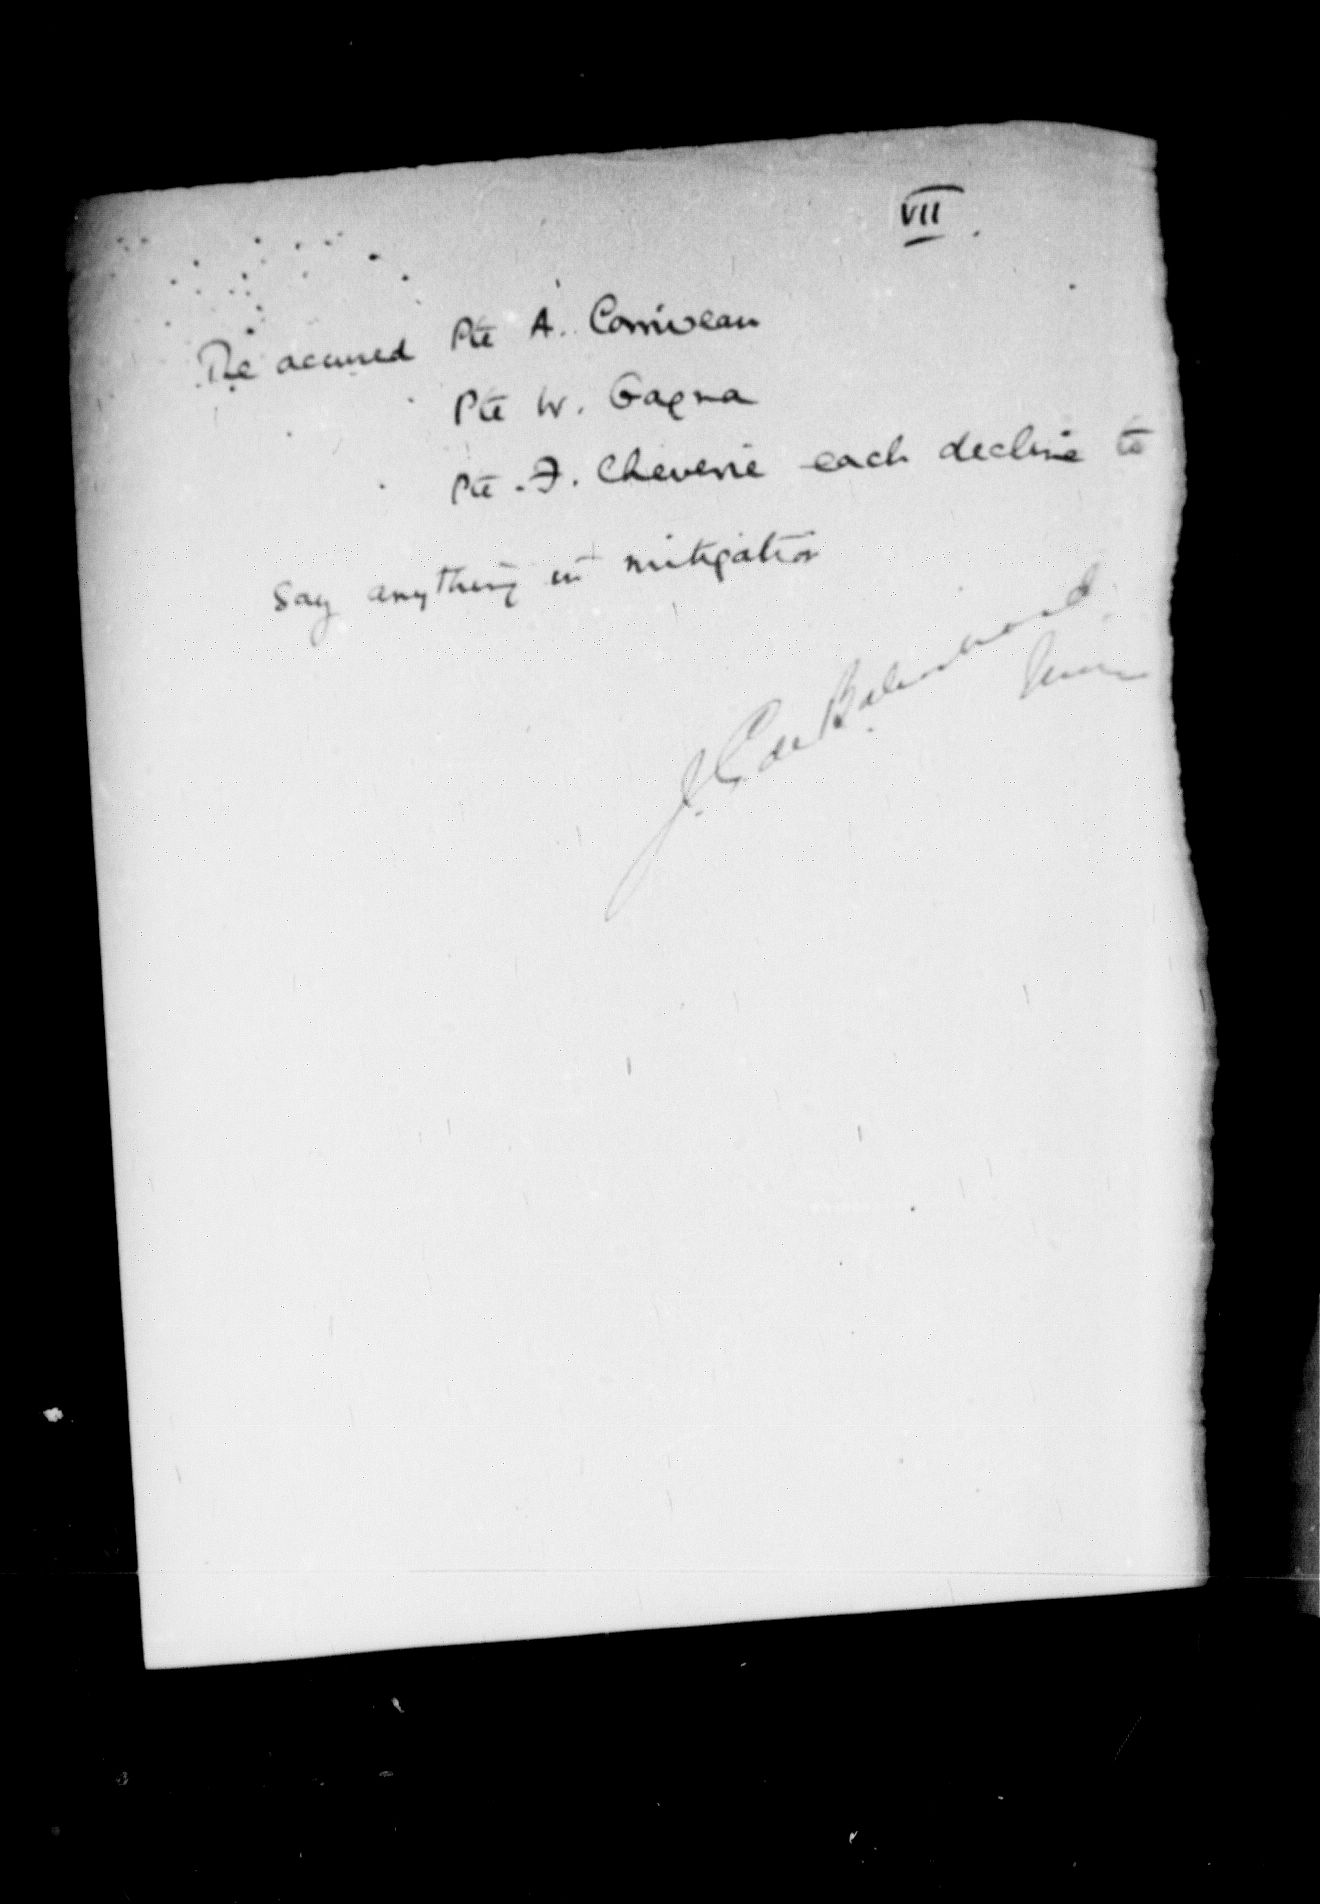 VII.
The accused Pte A. Corriveau
Pte W. Gagna
Pte F. Cheverie each decline to
say anything in mitigation